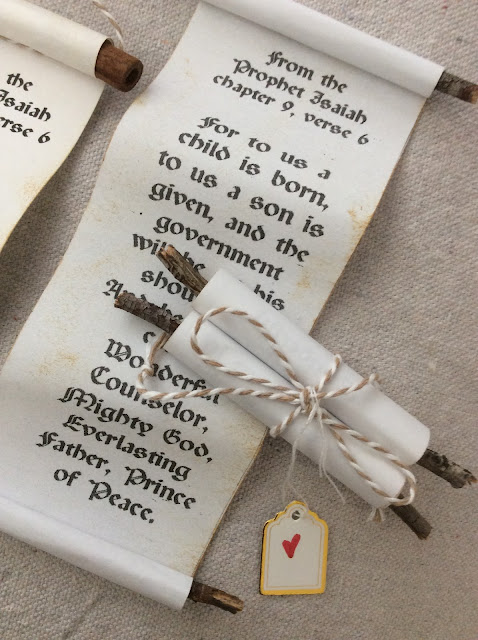 the
Isaiah
verse 6
From the
Prophet Isaiah
chapter 9, verse 6
For to us a
child is born,
to us a son is
given, and the
government
will be his
And
Wonderful
Counselor,
Mighty God,
Everlasting
Father, Prince
of Peace.